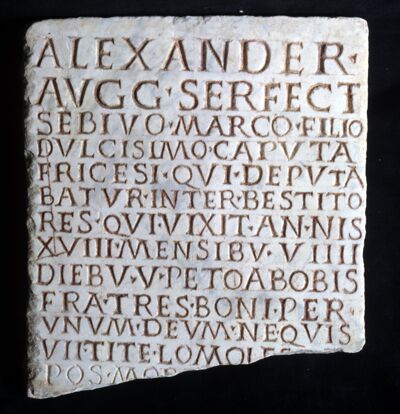 ALEXANDER·
AVGG·SERFECT
SEBIVO·MARCO·FILIO
DVLCISIMO·CAPVTA
FRICESI·QVI·DEPVTA
BATVR·INTER·BESTITO
RES·QVI·VIXIT·ANNIS
XVIII·MENSIBV·VIIII
DIEBV·V·PETOABOBIS
FRATRES·BONI·PER
VNVM·DEVM·NEQVIS
VIITITE·LOMOLES
POS·MOR